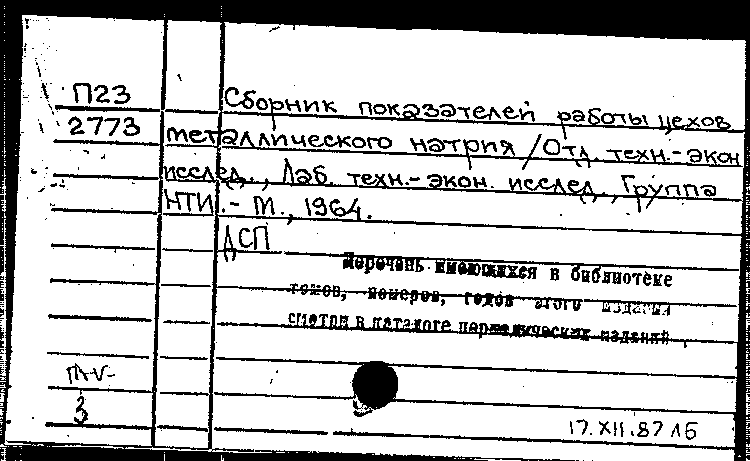 П23 Сборник показателей работы цехов
2773 металлического натрия / Отд. техн.-экон
исслед., Лаб. техн.-экон. исслед., Группа
НТИ.- М., 1964.
ДСП
Перечень имеющихся в библиотеке
томов, номеров, годов этого издания
смотри в каталоге периодических изданий.
3
17.XII.87 ЛБ